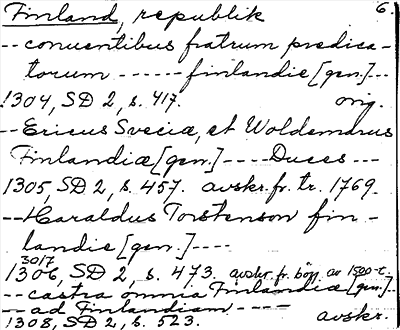 Finland, republik 6.
-- conventibus fratrum predica-
torum ------ finlandie [gen.]---
1304, SD 2, s. 417. orig.
-- Ericus Sveciæ, et Woldemarus
Finlandiæ [gen.] ---- Duces ---
1305, SD 2, s. 457. avskr. fr. tr. 1769.
-- Haraldus Torstenson fin-
landie [gen.] ----
3017
1306, SD 2, s. 473. avskr. fr. börj. av 1500-t.
-- castra omnia Finlandiæ [gen.]--
-- ad Finlandiam ----
1308, SD 2, s. 523. avskr.